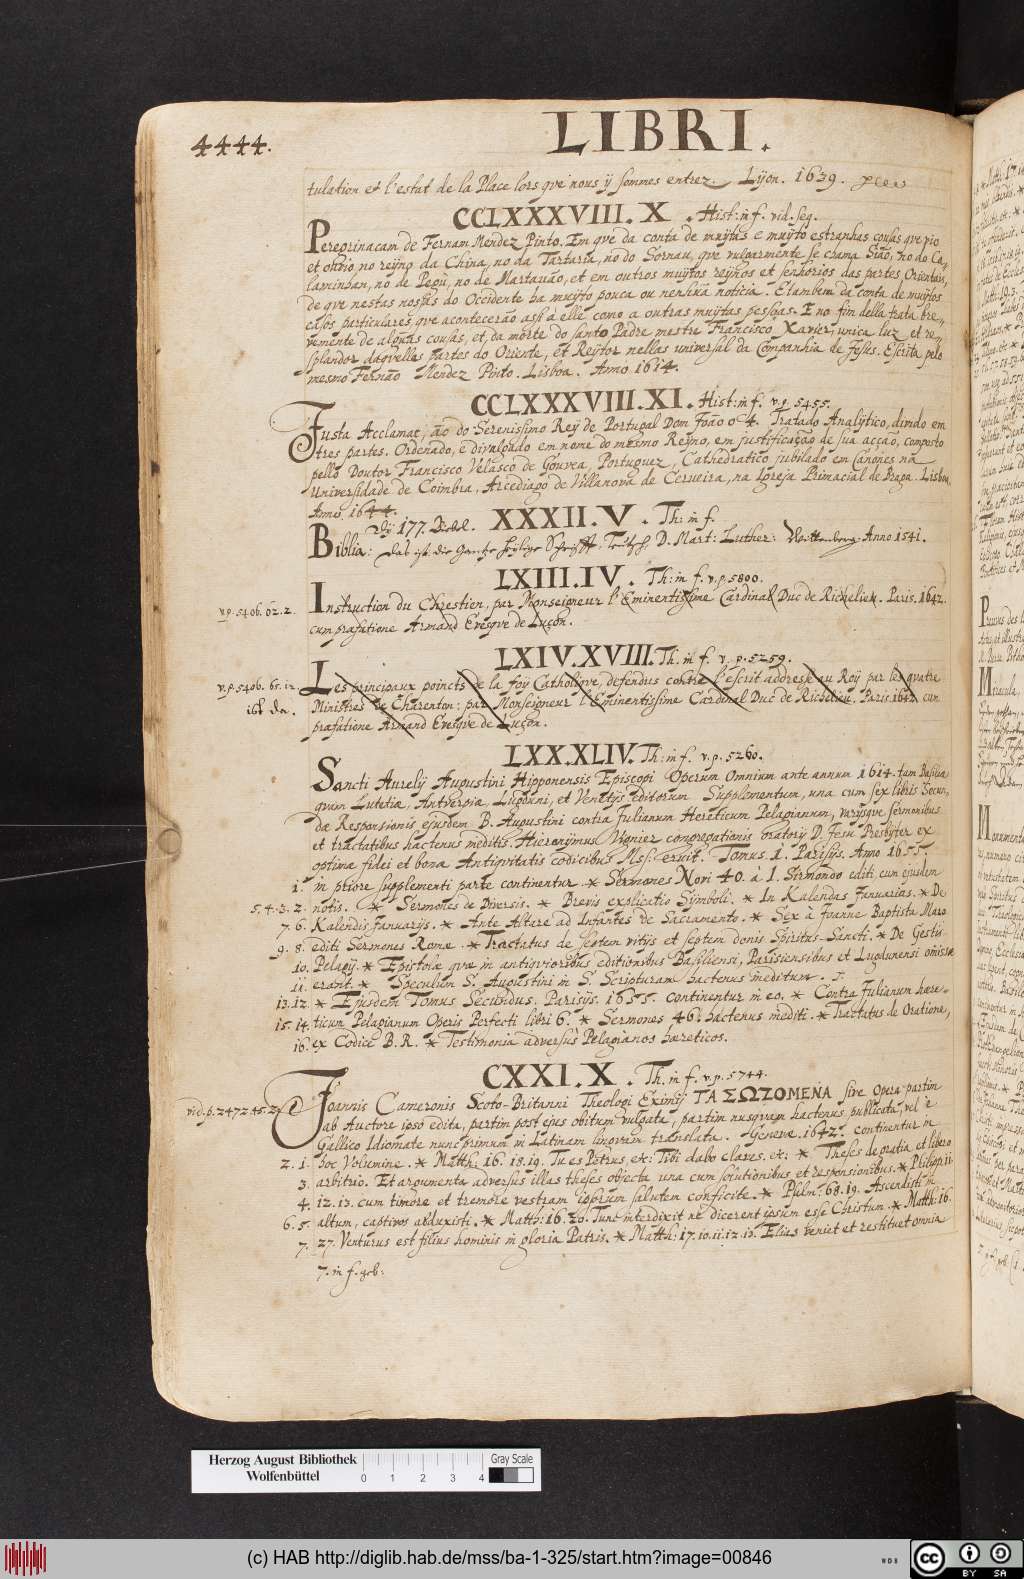 4444.
LIBRI.
tulation et l'estat de la Place lors que nous ÿ sommes entrez. Lÿon. 1639.
CCLXXXVIII. X. Hist: in f. vid. seq.
Peregrinacam de Fernam Mendez Pinto. Em que da conta de muÿtas e muÿto estranhas cousas que vio
et ouvio no reÿno da China, no da Tartaria, no do Sornau, que vulgarmente se chama Sião, no do Ca-
laminhan, no de Pegù, no de Martavão, et em outros muÿtos reÿnos et senhorios das partes Orientais,
de que nestas nossas do Occidente ha muÿto pouca ou nenhũa noticia. E tambem da conta de muÿtos
casos particulares, que acontecerão assi à elle como a outras muÿtas pessoas. E no fim della trata bre-
vemente de algũas cousas, et, da morte do santo Padre mestre Francisco Xavier, unica luz et re-
splandor daquelles partes do Oriente, et Reÿtor nellas universal da Companhia de Jesus. Escrita pelo
mesmo Fernão Mendez Pinto. Lisboa. Anno 1614.
CCLXXXVIII. XI. Hist: in f. v.p. 5455.
Justa Acclamaçião do Serenissimo Rey de Portugal Dom João o 4. Tratado Analÿtico, divido em
tres partes. Ordenado, e divulgado em nome do mesmo Reÿno, em justificação de sua acção, composto
pello Doutor Francisco Velasco de Gouvea, Portuguez, Cathedratico jubilado em canones na
Universidade de Coimbra, Arcediago de Villanova de Cerveira, na Igreja Primacial de Braga. Lisboa
Anno 1644.
177. Bibel. XXXII. V. Th: in f.
Biblia: das ist die gantze heÿlige Schrifft: Teutsch D. Mart: Luther: Wittenberg. Anno 1541.
LXIII. IV. Th: in f. v.p. 5800.
v.p. 5406. 62. 2. Instruction du Chrestien, par Monseigneur l'Eminentissime Cardinal Duc de Richelieu. Paris. 1642.
cum præfatione Armand Evesque de Luçon.
LXIV. XVIII. Th: in f. v. p. 5259.
v.p. 5406. 65. 12. Les principaux poincts de la foÿ Catholique, defendus contre l'escrit addressé au Roy par les quatre
ist da. Ministres de Charenton: par Monseigneur l'Eminentissime Cardinal Duc de Richelieu. Paris 1642. cum
præfatione Armand Evesque de Luçon.
LXX. XLIV. Th: in f. v.p. 5260.
Sancti Aurelÿ Augustini Hipponensis Episcopi Operum Omnium ante annum 1614. tam Basileæ
quam Lutetiæ, Antverpiæ, Lugduni, et Venetÿs editorum Supplementum, una cum sex libris Secun-
dæ Responsionis ejusdem B. Augustini contra Julianum Hereticum Pelagianum, varÿsque sermonibus
et tractatibus hactenus ineditis. Hieronÿmus Vignier congregationis oratorÿ D. Jesu Presbÿter ex
optimæ fidei et bonæ Antiquitatis codicibus Mss. eruit. Tomus 1. Parisÿs. Anno 1655.
1. in priore supplementi parte continentur * Sermones Novi 40. à I. Sirmondo editi cum ejusdem
5. 4. 3. 2. notis. * Sermones de Diversis. * Brevis explicatio Sÿmboli. * In Kalendas Januarias. * De
7. 6. Kalendis Januarÿs. * Ante Altare ad Infantes de Sacramento. * Sex à Joanne Baptista Maro
9. 8. editi Sermones Romæ. * Tractatus de septem vitÿs et septem donis Spiritus Sancti. * De Gestis
10. Pelagÿ. * Epistolæ quæ in antiquioribus editionibus Basiliensi, Parisiensibus et Lugdunensi omissæ
11. erant. * Speculum S. Augustini in S. Scripturam hactenus ineditum.
13. 12. * Ejusdem Tomus Secundus. Parisÿs. 1655. continentur in eo. * Contra Julianum hære-
15. 14. ticum Pelagianum Operis Perfecti libri 6. * Sermones 46. hactenus inediti. * Tractatus de Oratione,
16. ex Codice B. R. * Testimonia adversus Pelagianos hæreticos.
CXXI. X. Th. in f. v.p. 5744.
vid. p. 2472. 45. 2. Joannis Cameronis Scoto-Britanni Theologi Eximÿ ΤΑ ΣΩΖΟΜΕΝΑ sive Opera partim
ab Auctore ipso edita, partim post ejus obitum vulgata, partim nusquam hactenus publicata, vel è
Gallico Idiomate nunc primum in Latinam linguam translata. Genevæ. 1642. continentur in
2. 1. hoc Volumine. * Matth. 16. 18. 19. Tu es Petrus, etc: Tibi dabo claves. etc: * Theses de gratia et libero
3. arbitrio. Et argumenta adversus illas theses objecta una cum solutionibus et responsionibus. * Philipp. 11.
4. 12. 13. cum timore et tremore vestram ipsorum salutem conficite. * Psalm. 68. 19. Ascendisti in
6. 5. altum, captivos adduxisti. * Matth: 16. 20. Tunc interdixit ne dicerent ipsum esse Christum. * Matth: 16.
7. 27. Venturus est filius hominis in gloria Patris. * Matth: 17. 10. 11. 12. 13. Elias veniet et restituet omnia
7. in f. geb:
Herzog August Bibliothek
Wolfenbüttel
0 1 2 3 4
Gray Scale
(c) HAB http://diglib.hab.de/mss/ba-1-325/start.htm?image=00846
WDB
cc
BY SA